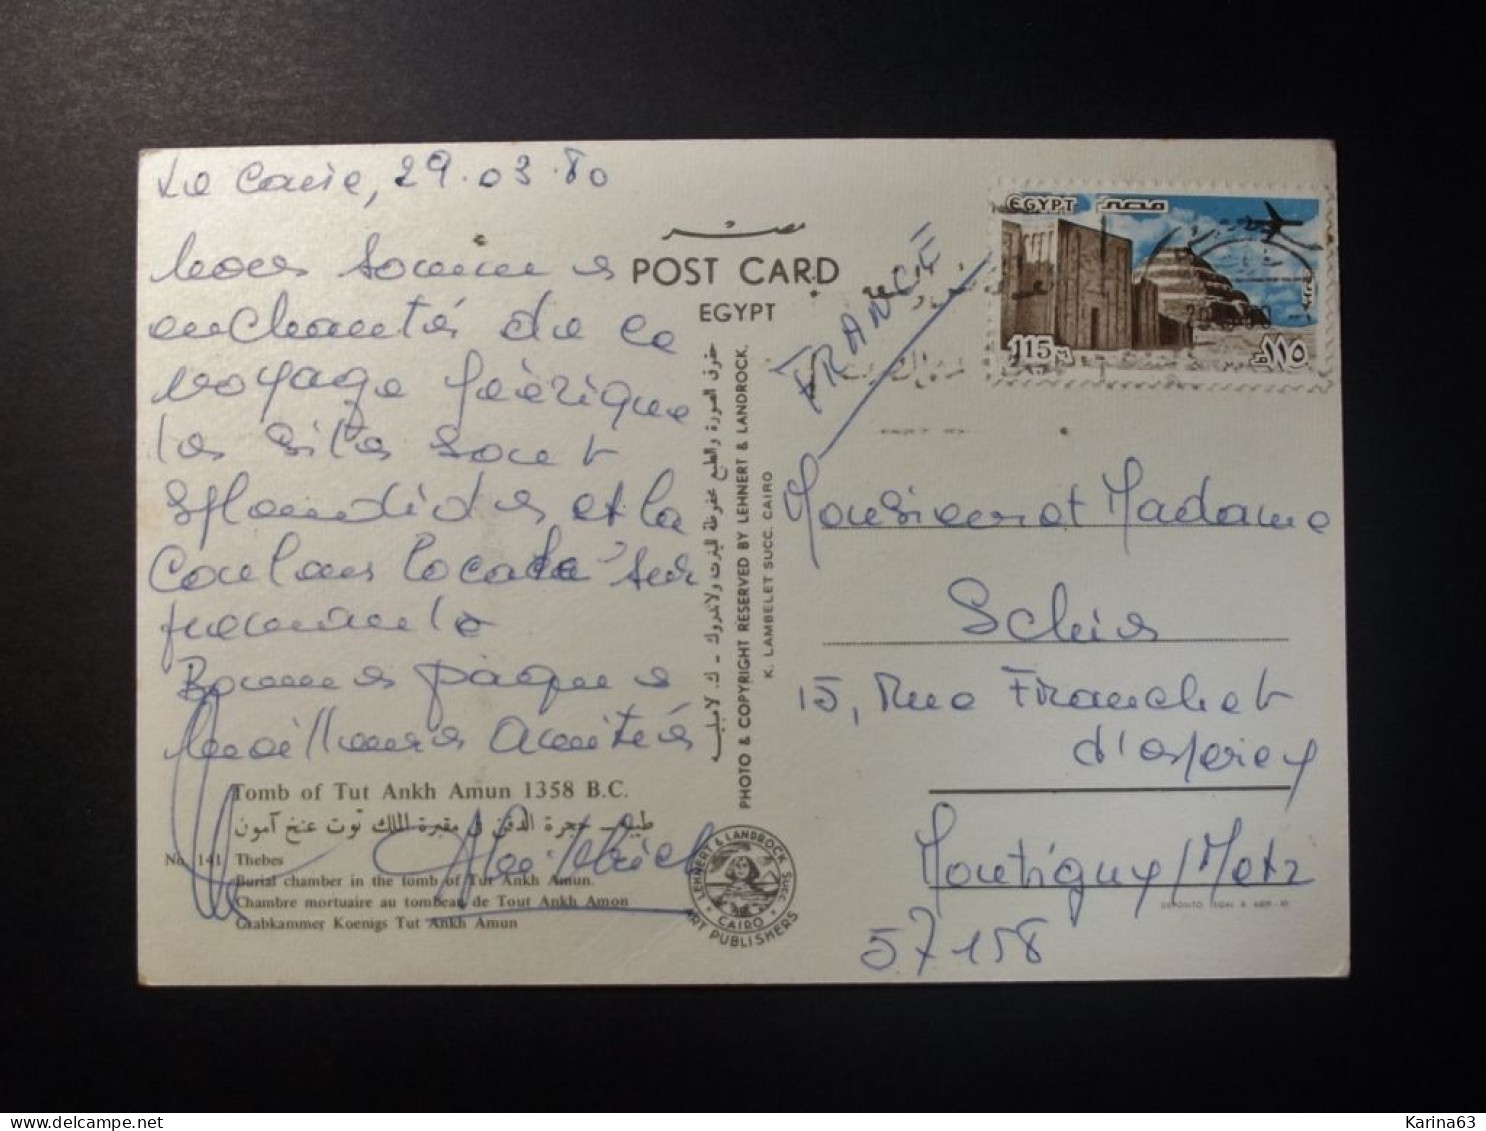 Le Caire, 29.03.80
Nous sommes
enchantés de ce
voyage féérique
les sites sont
splendides et la
couleur locale sur
prenante
Bonnes Pâques
Meilleures amitiés
Tomb of Tut Ankh Amun 1358 B.C.
طيبة - حجرة الدفن في مقبرة الملك توت عنخ آمون
No. 141 Thebes
Burial chamber in the tomb of Tut Ankh Amun.
Chambre mortuaire au tombeau de Tout Ankh Amon
Grabkammer Koenigs Tut Ankh Amun
مصر
POST CARD
EGYPT
حقوق الصورة والطبع محفوظة للينرت ولاندروك - ك. لامبليه
PHOTO & COPYRIGHT RESERVED BY LEHNERT & LANDROCK.
K. LAMBELET SUCC. CAIRO
LEHNERT & LANDROCK SUCC.
CAIRO
ART PUBLISHERS
EGYPT مصر
115 M ١١٥
FRANCE
Monsieur et Madame
15, Rue Franchet
d'esperey
Montigny/Metz
57158
Karina63